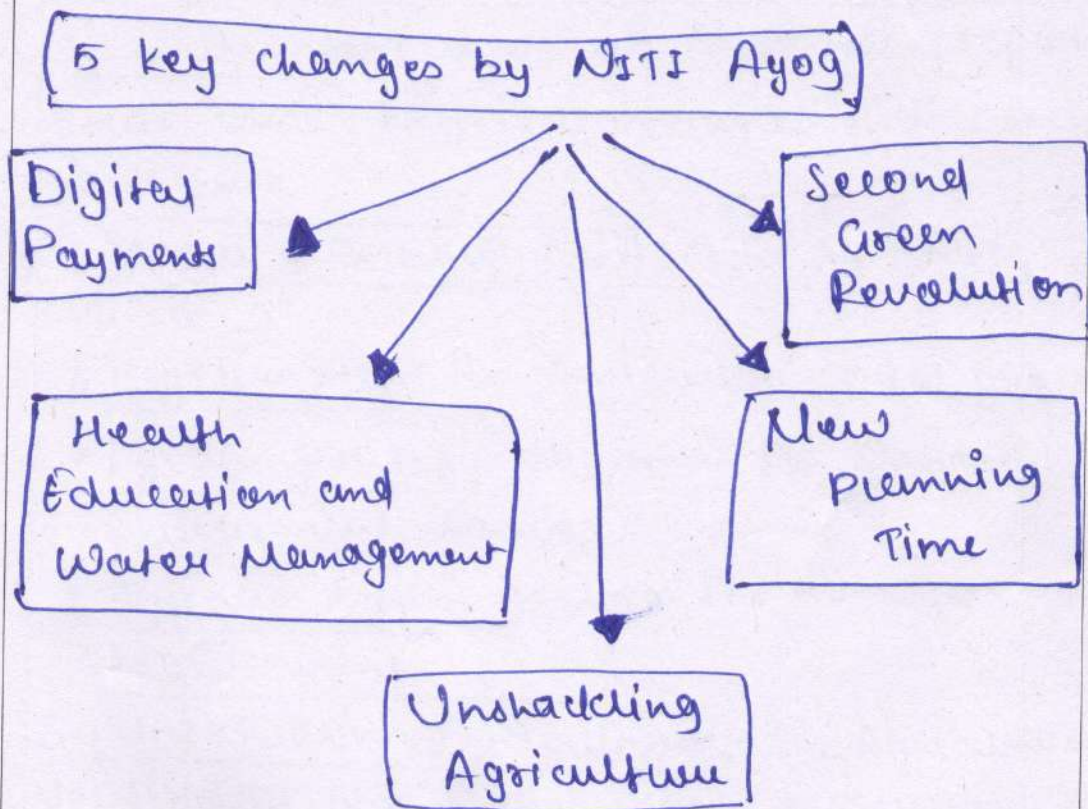 5 key changes by NITI Ayog
Digital
Payments
Second
Green
Revolution
Health
Education and
Water Management
New
Planning
Time
Unshackling
Agriculture